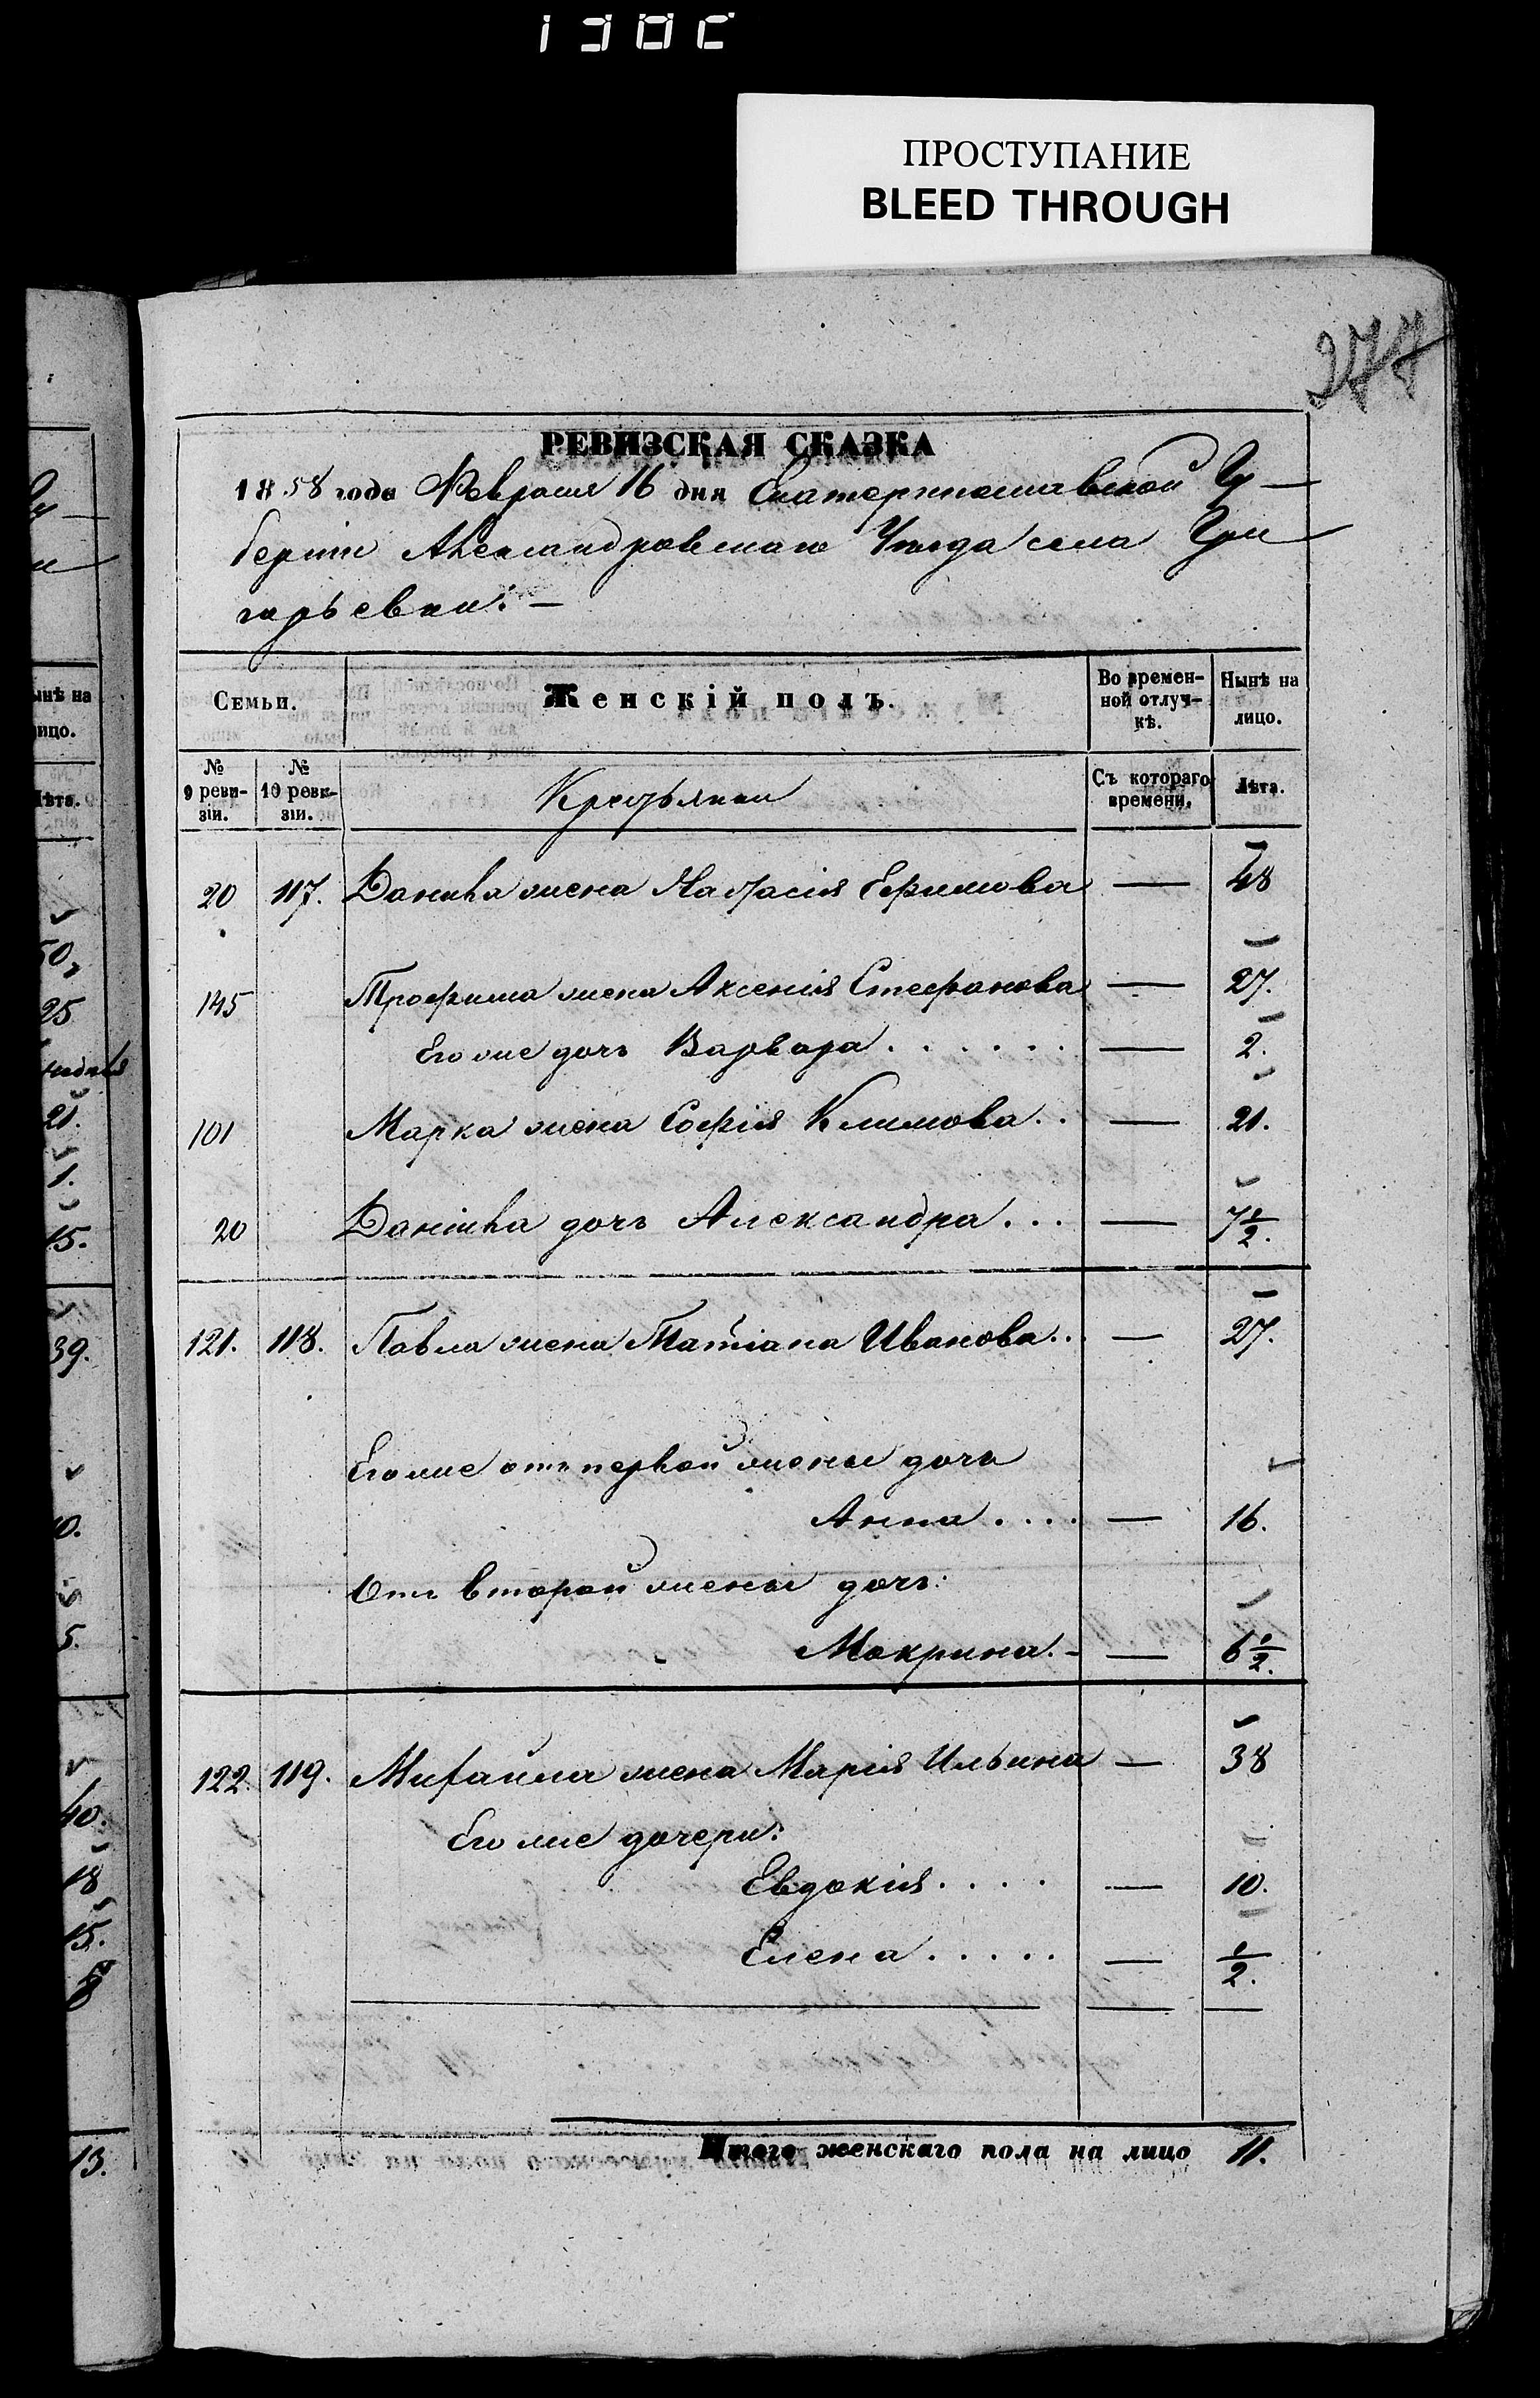 ПРОСТУПАНИЕ
BLEED THROUGH
277
РЕВИЗСКАЯ СКАЗКА
1858 года Февраля 16 дня Екатеринославской Гу-
берніи Александровскаго Уѣзда села Гри
горьевки. —
Семьи. Женскій полъ. Во времен-ной отлуч-кѣ. Нынѣ на лицо.
№ 9 реви-зіи. № 10 реви-зіи. Крестьянки Съ котораго времени. Лѣта.
20 117. Данила жена Настасія Ефимова — 48
145 Трофима жена Аксенія Стефанова — 27.
Его же дочь Варвара . . . . . . — 2.
101 Марка жена Софія Климова . . — 21.
20 Даніила дочь Александра . . . — 7 1/2.
121. 118. Павла жена Татіана Иванова . . — 27.
Его же отъ первой жены дочь
Анна . . . . — 16.
Отъ второй жены дочь:
Мокрина. - — 6 1/2.
122. 119. Михайла жена Марія Ильина — 38
Его же дочери:
Евдокія . . . . — 10.
Елена . . . . . — 1/2.
Итого женскаго пола на лицо 11.